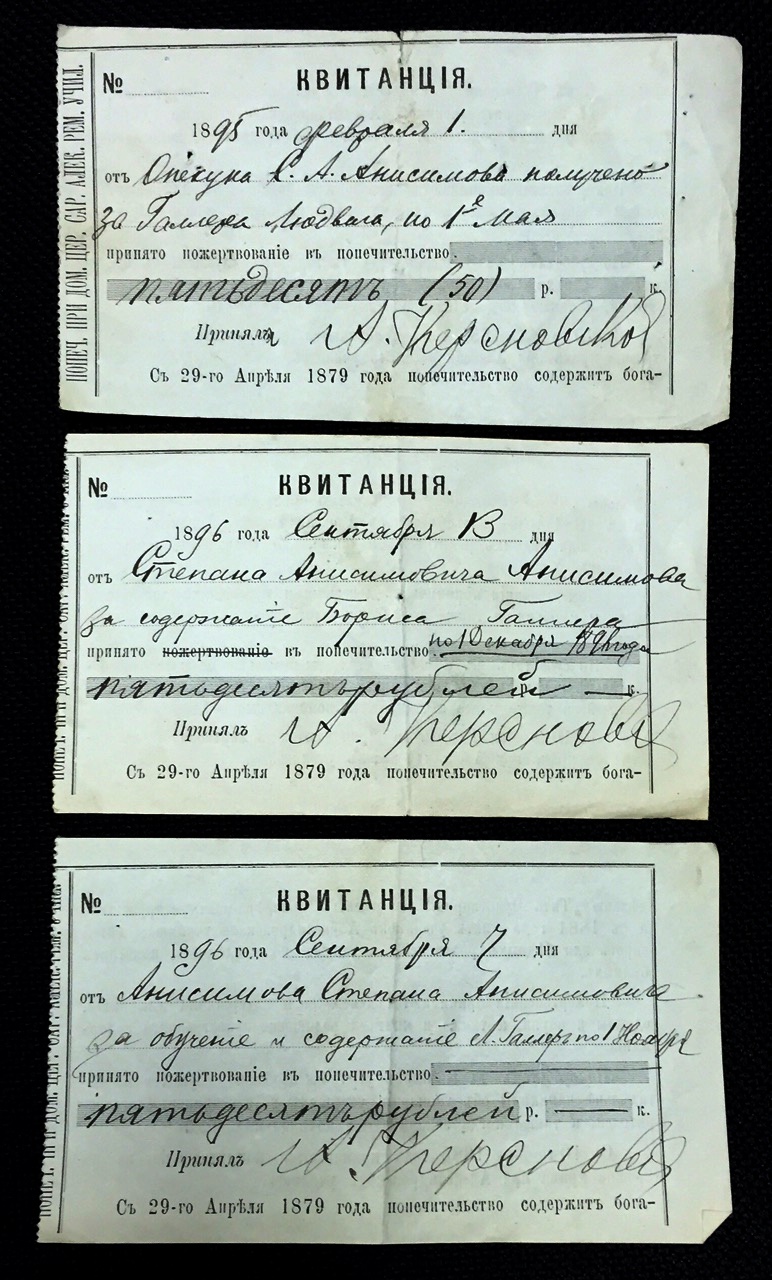 ПОПЕЧ. ПРИ ДОМ. ЦЕР. САР. АЛЕК. РЕМ. УЧИЛ.
№ КВИТАНЦІЯ.
1895 года февраля 1. дня
отъ Опекуна С. А. Анисимова получено
за Галлера Людвига, по 1е Мая
принято пожертвованіе въ попечительство.
пятьдесятъ (50) р. к.
Принялъ А. Керсновской
Съ 29-го Апрѣля 1879 года попечительство содержитъ бога-
№ КВИТАНЦІЯ.
1896 года Сентября 13 дня
отъ Степана Анисимовича Анисимова
за содержаніе Бориса Галлера
принято пожертвованіе въ попечительство. по 1 Декабря года
пятьдесятъ рублей р. — к.
Принялъ А. Керснов
Съ 29-го Апрѣля 1879 года попечительство содержитъ бога-
№ КВИТАНЦІЯ.
1896 года Сентября 7 дня
отъ Анисимова Степана Анисимовича
за обученіе и содержаніе Л. Галлеръ по 1 Ноября
принято пожертвованіе въ попечительство. —
пятьдесятъ рублей р. — к.
Принялъ А. Керснов
Съ 29-го Апрѣля 1879 года попечительство содержитъ бога-